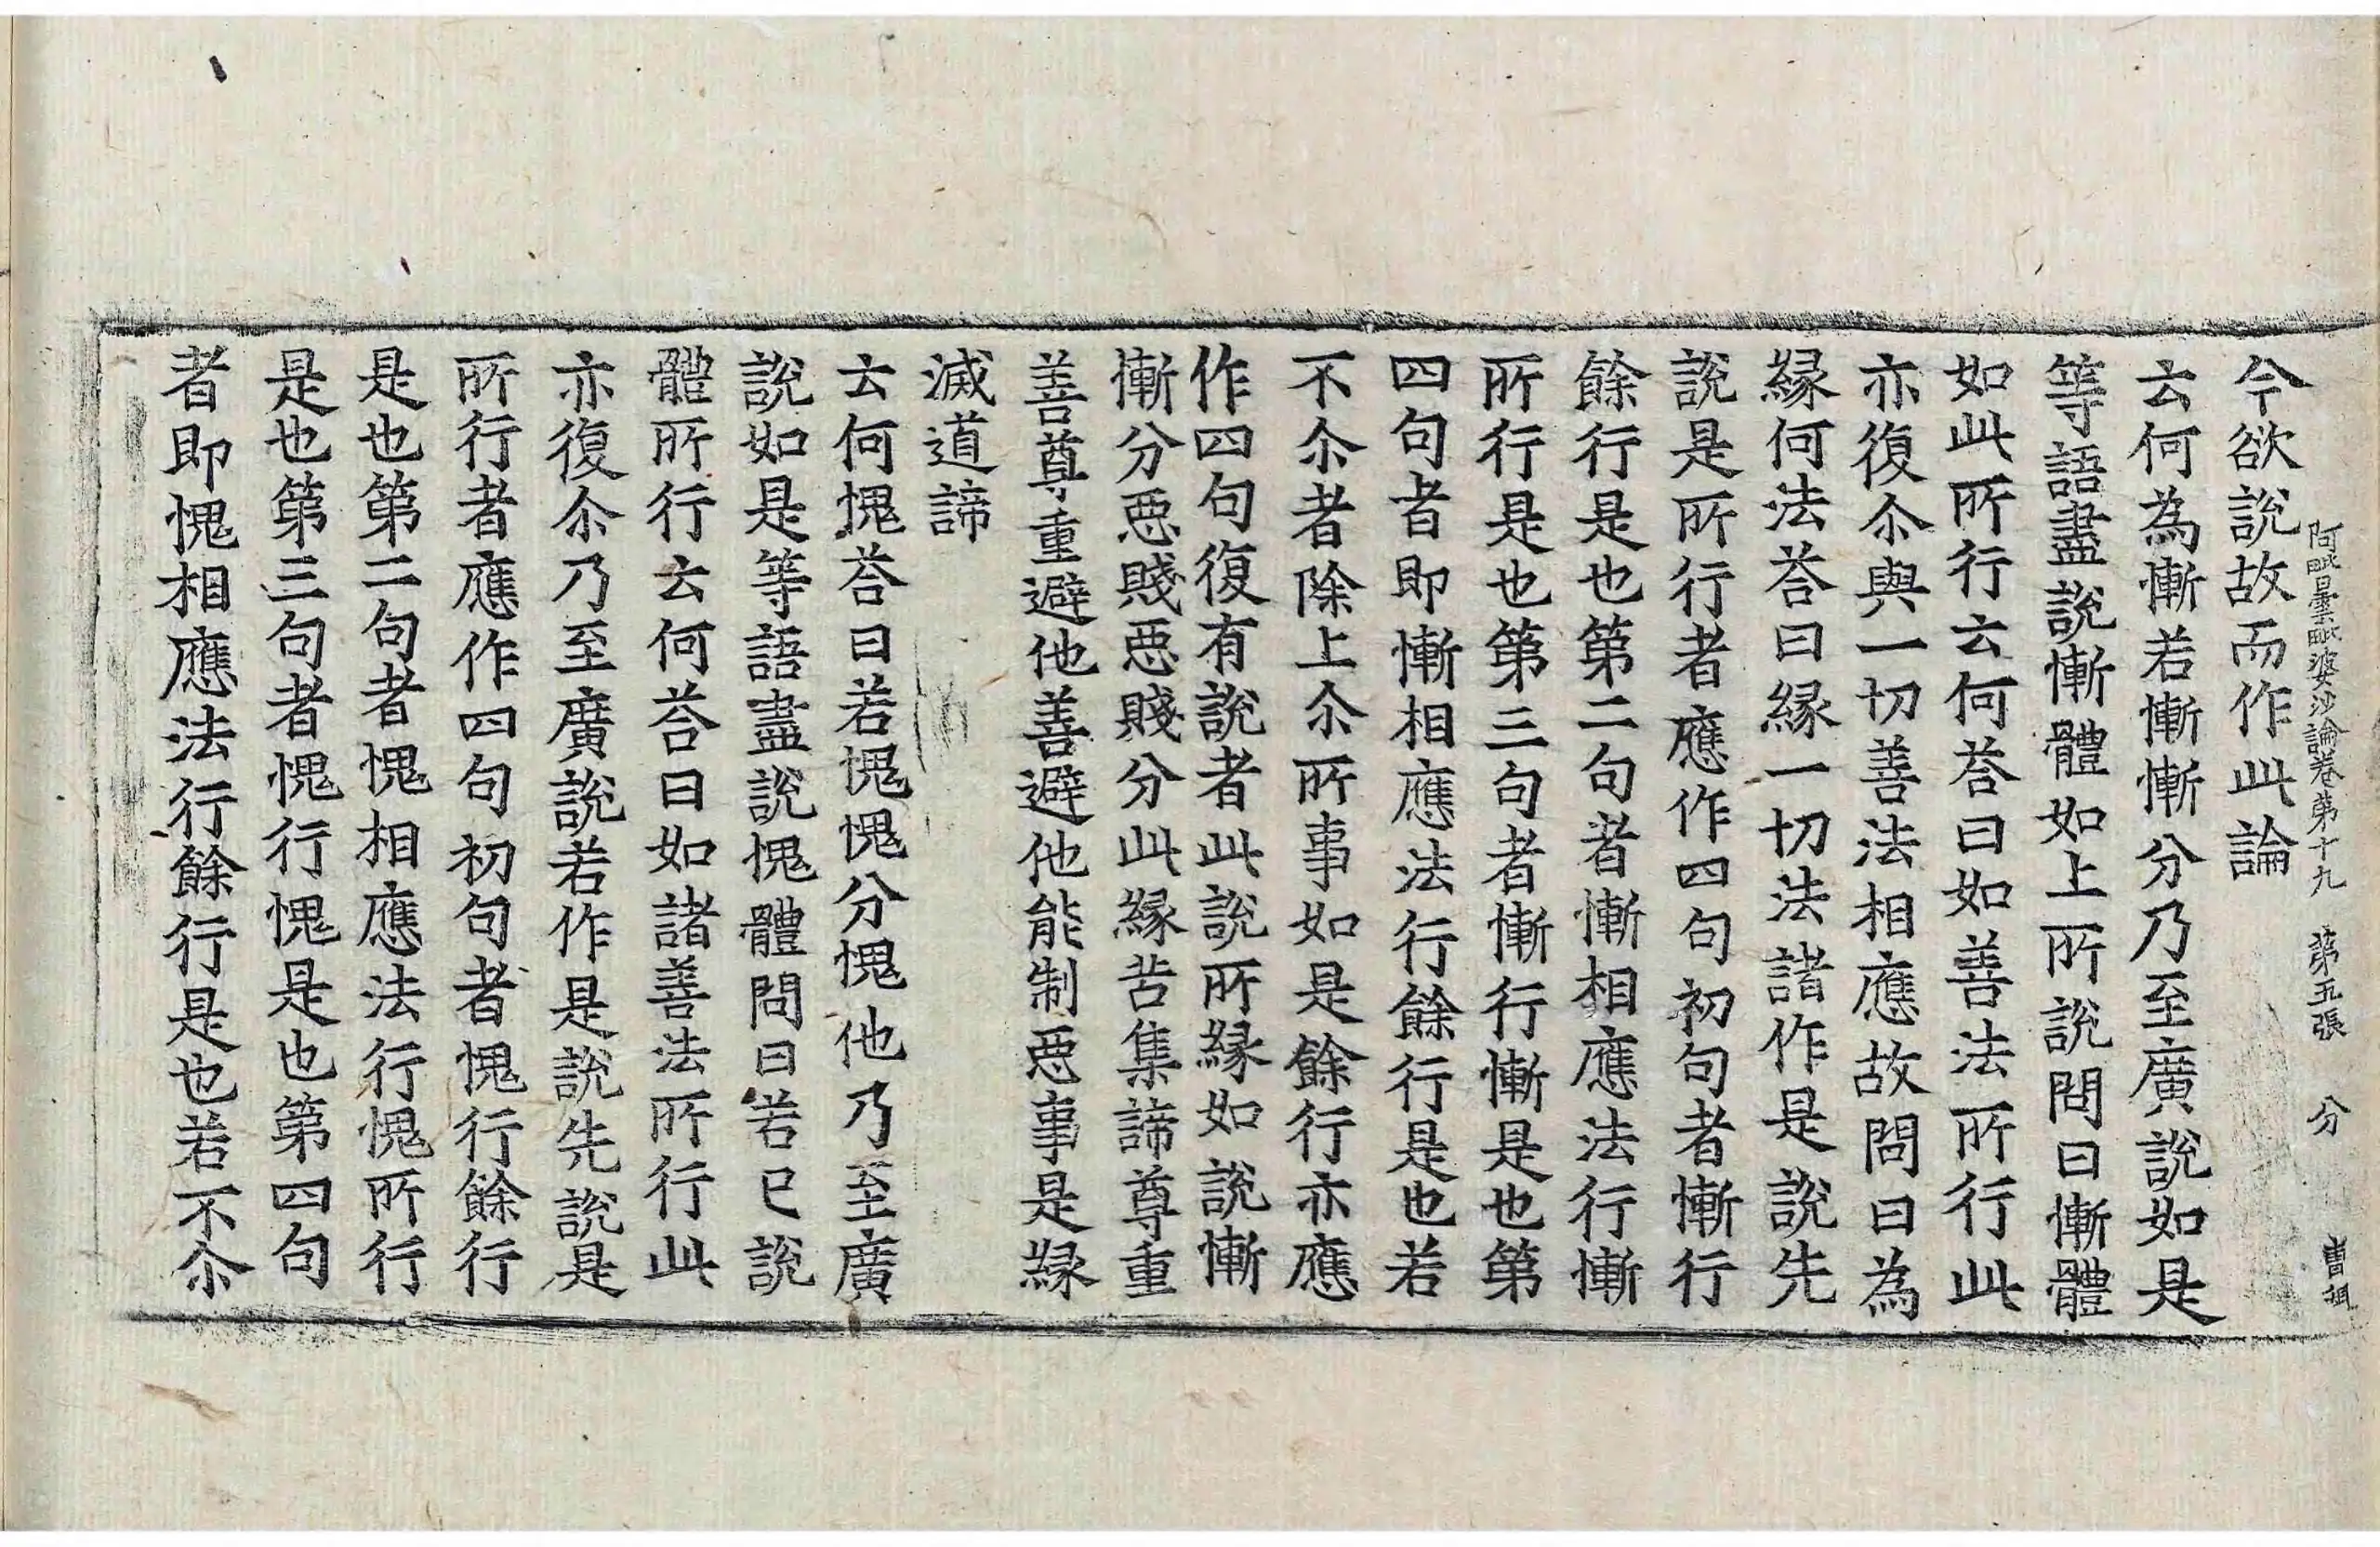 今欲說故而作此論
阿毗曇毗婆沙論卷第十九　第五張　分　曹祖
云何為慚若慚慚分乃至廣說如是
等語盡說慚體如上所說問曰慚體
如此所行云何荅曰如善法所行此
亦復尒與一切善法相應故問曰為
緣何法荅曰緣一切法諸作是說先
說是所行者應作四句初句者慚行
餘行是也第二句者慚相應法行慚
所行是也第三句者慚行慚是也第
四句者即慚相應法行餘行是也若
不尒者除上尒所事如是餘行亦應
作四句復有說者此說所緣如說慚
慚分惡賤惡賤分此緣苦集諦尊重
善尊重避他善避他能制惡事是緣
滅道諦
云何愧荅曰若愧愧分愧他乃至廣
說如是等語盡說愧體問曰若已說
體所行云何荅曰如諸善法所行此
亦復尒乃至廣說若作是說先說是
所行者應作四句初句者愧行餘行
是也第二句者愧相應法行愧所行
是也第三句者愧行愧是也第四句
者即愧相應法行餘行是也若不尒